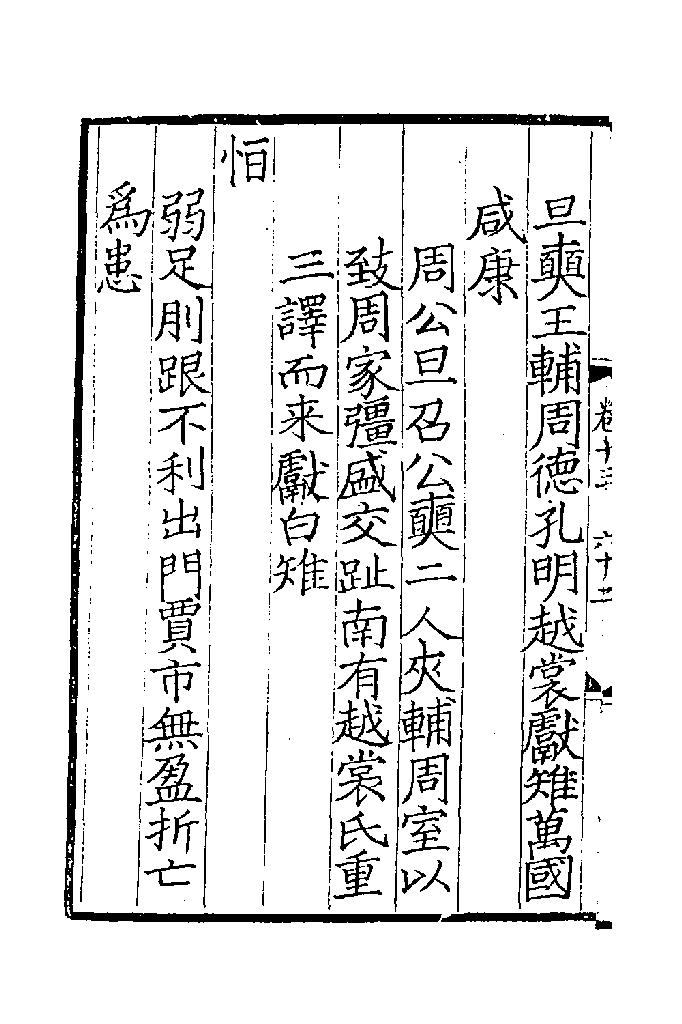 卷十三
旦奭王輔周德孔明越裳獻雉萬國
咸康
周公旦召公奭二人夾輔周室以
致周家彊盛交趾南有越裳氏重
三譯而来獻白雉
恒
弱足刖跟不利出門賈市無盈折亡
爲患